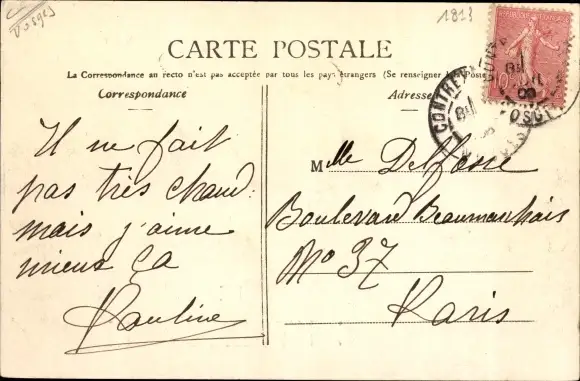 Vosges
1813
CARTE POSTALE
La Correspondance au recto n'est pas acceptée par tous les pays étrangers (Se renseigner à la Poste
Correspondance
Adresse
RÉPUBLIQUE FRANÇAISE
Il ne fait
pas très chaud.
mais j'aime
mieux ça
Pauline
Mlle Delfosse
Boulevard Beaumarchais
No 37
Paris